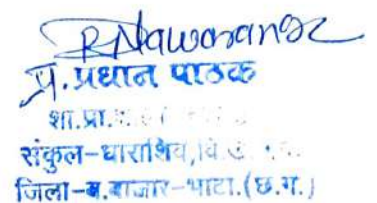 RNawarange
प्र. प्रधान पाठक
शा.प्रा.
संकुल-धाराशिव, वि.
जिला-ब.बाजार-भाटा.(छ.ग.)